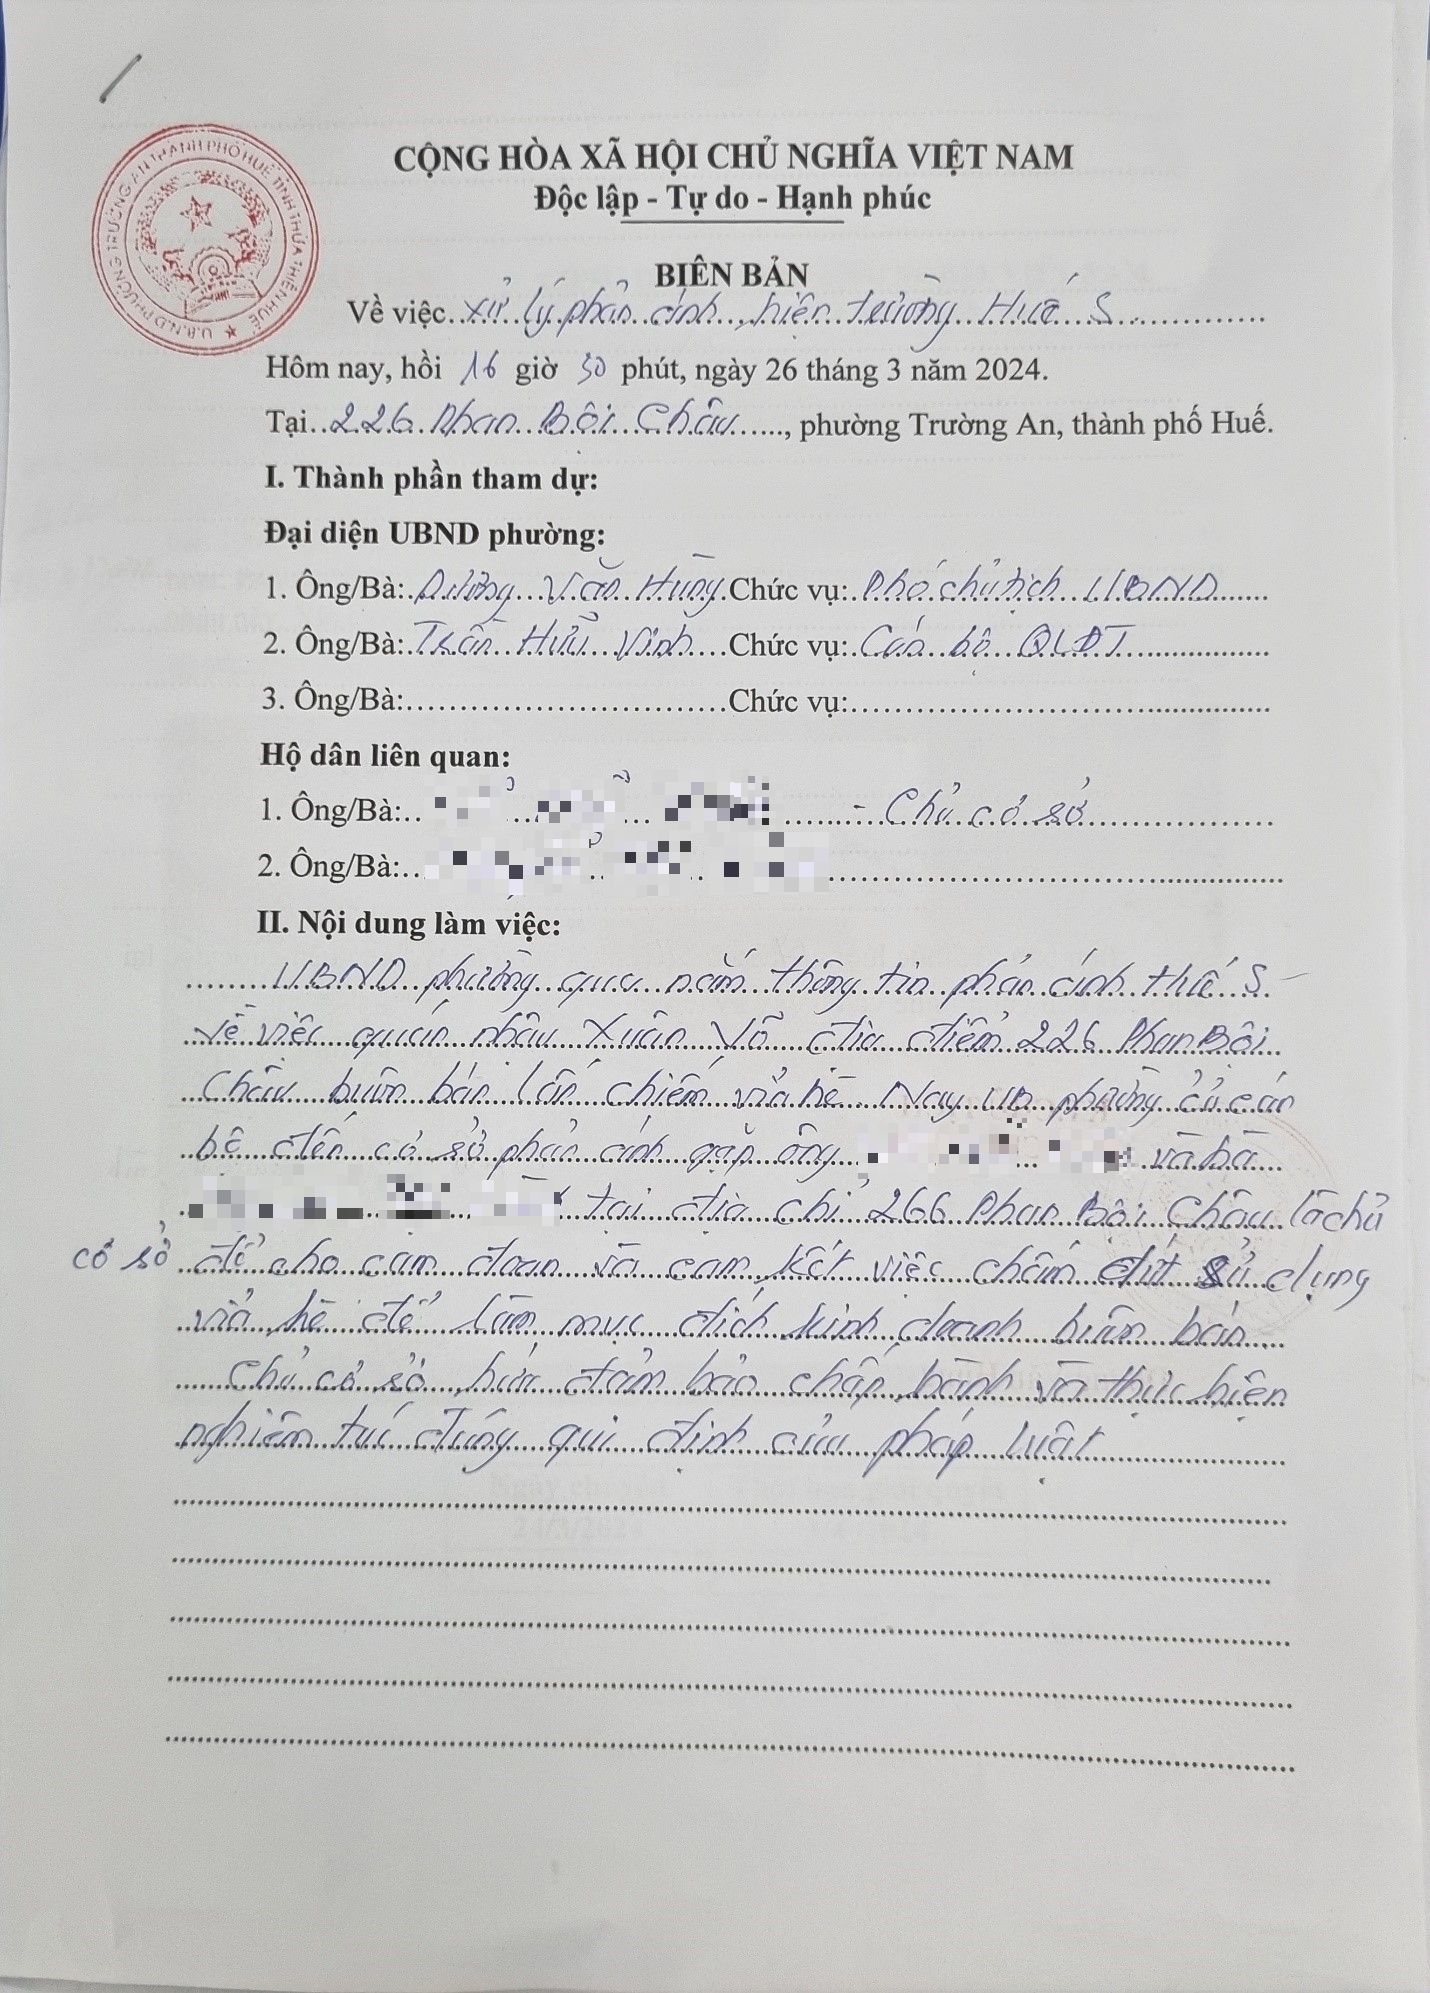 U.B.N.D PHƯỜNG TRƯỜNG AN THÀNH PHỐ HUẾ TỈNH THỪA THIÊN HUẾ
CỘNG HÒA XÃ HỘI CHỦ NGHĨA VIỆT NAM
Độc lập - Tự do - Hạnh phúc
BIÊN BẢN
Về việc xử lý phản ánh hiện trường Huế S
Hôm nay, hồi 16 giờ 30 phút, ngày 26 tháng 3 năm 2024.
Tại 226 Phan Bội Châu, phường Trường An, thành phố Huế.
I. Thành phần tham dự:
Đại diện UBND phường:
1. Ông/Bà: Dương Văn Hùng Chức vụ: Phó chủ tịch UBND
2. Ông/Bà: Trần Hữu Vinh Chức vụ: Cán bộ QLĐT
3. Ông/Bà: Chức vụ:
Hộ dân liên quan:
1. Ông/Bà: - Chủ cơ sở
2. Ông/Bà:
II. Nội dung làm việc:
UBND phường qua nắm thông tin phản ánh Huế S
về việc quán nhậu Xuân Võ địa điểm 226 Phan Bội
Châu buôn bán lấn chiếm vỉa hè. Nay UB phường cử cán
bộ đến cơ sở phản ánh gặp ông và bà
tại địa chỉ 266 Phan Bội Châu là chủ
cơ sở để cho cam đoan và cam kết việc chấm dứt sử dụng
vỉa hè để làm mục đích kinh doanh buôn bán
Chủ cơ sở hứa đảm bảo chấp hành và thực hiện
nghiêm túc đúng qui định của pháp luật